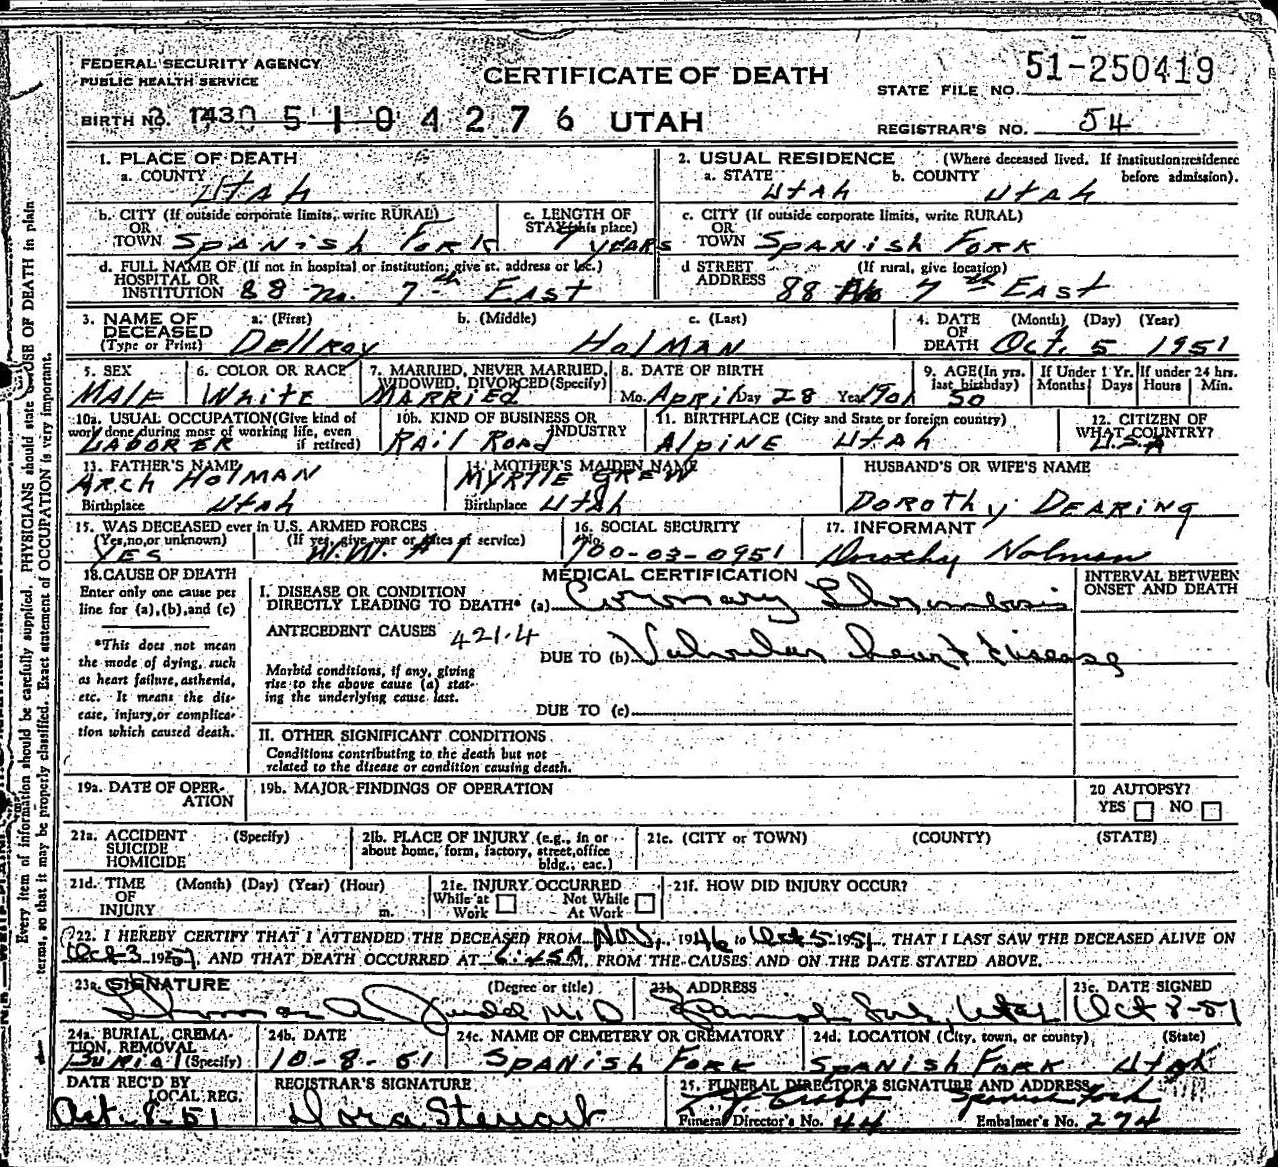 FEDERAL SECURITY AGENCY
PUBLIC HEALTH SERVICE
CERTIFICATE OF DEATH
51-250419
STATE FILE NO.
BIRTH NO. 5104276 UTAH
REGISTRAR'S NO. 54
1. PLACE OF DEATH
a. COUNTY Utah
2. USUAL RESIDENCE (Where deceased lived. If institution: residence before admission).
a. STATE Utah b. COUNTY Utah
b. CITY (If outside corporate limits, write RURAL)
OR
TOWN Spanish Fork
c. LENGTH OF STAY (this place) 7 years
c. CITY (If outside corporate limits, write RURAL)
OR
TOWN Spanish Fork
d. FULL NAME OF (If not in hospital or institution, give st. address or loc.)
HOSPITAL OR
INSTITUTION 88 No. 7th East
d STREET (If rural, give location)
ADDRESS 88 No 7th East
3. NAME OF DECEASED (Type or Print)
a. (First) b. (Middle) c. (Last)
Dellroy Holman
4. DATE OF DEATH (Month) (Day) (Year)
Oct. 5 1951
5. SEX
Male
6. COLOR OR RACE
White
7. MARRIED, NEVER MARRIED, WIDOWED, DIVORCED (Specify)
Married
8. DATE OF BIRTH
Mo. April Day 28 Year 1901
9. AGE (In yrs. last birthday) 50
If Under 1 Yr. Months Days
If under 24 hrs. Hours Min.
10a. USUAL OCCUPATION (Give kind of work done during most of working life, even if retired)
Laborer
10b. KIND OF BUSINESS OR INDUSTRY
Rail Road
11. BIRTHPLACE (City and State or foreign country)
Alpine Utah
12. CITIZEN OF WHAT COUNTRY?
U.S.A
13. FATHER'S NAME
Arch Holman
Birthplace Utah
14. MOTHER'S MAIDEN NAME
Myrtle Grew
Birthplace Utah
HUSBAND'S OR WIFE'S NAME
Dorothy Dearing
15. WAS DECEASED ever in U.S. ARMED FORCES
(Yes, no, or unknown) (If yes, give war or dates of service)
Yes W.W. # 1
16. SOCIAL SECURITY No.
700-03-0951
17. INFORMANT
Dorothy Holman
18. CAUSE OF DEATH
Enter only one cause per line for (a), (b), and (c)
*This does not mean the mode of dying, such as heart failure, asthenia, etc. It means the disease, injury, or complication which caused death.
MEDICAL CERTIFICATION
INTERVAL BETWEEN ONSET AND DEATH
I. DISEASE OR CONDITION
DIRECTLY LEADING TO DEATH* (a) Coronary Thrombosis
ANTECEDENT CAUSES 421.4
DUE TO (b) Valvular heart disease
Morbid conditions, if any, giving rise to the above cause (a) stating the underlying cause last.
DUE TO (c)
II. OTHER SIGNIFICANT CONDITIONS
Conditions contributing to the death but not related to the disease or condition causing death.
19a. DATE OF OPERATION
19b. MAJOR FINDINGS OF OPERATION
20 AUTOPSY?
YES NO
21a. ACCIDENT (Specify)
SUICIDE
HOMICIDE
21b. PLACE OF INJURY (e.g., in or about home, form, factory, street, office bldg., eac.)
21c. (CITY or TOWN) (COUNTY) (STATE)
21d. TIME (Month) (Day) (Year) (Hour)
OF
INJURY m.
21e. INJURY OCCURRED
While at Work Not While At Work
21f. HOW DID INJURY OCCUR?
22. I HEREBY CERTIFY THAT I ATTENDED THE DECEASED FROM Nov, 1946 to Oct 5 1951, THAT I LAST SAW THE DECEASED ALIVE ON
Oct 3 1951, AND THAT DEATH OCCURRED AT M, FROM THE CAUSES AND ON THE DATE STATED ABOVE.
23a. SIGNATURE (Degree or title)
Thomas A Judd M.D
23b ADDRESS
Spanish Fork, Utah
23c. DATE SIGNED
Oct 8-51
24a. BURIAL, CREMATION, REMOVAL (Specify)
Burial
24b. DATE
10-8-51
24c. NAME OF CEMETERY OR CREMATORY
Spanish Fork
24d. LOCATION (City, town, or county) (State)
Spanish Fork Utah
DATE REC'D BY LOCAL REG.
Oct-8-51
REGISTRAR'S SIGNATURE
Dora Stewart
25. FUNERAL DIRECTOR'S SIGNATURE AND ADDRESS
Spanish Fork
Funeral Director's No. 44 Embalmer's No. 274
Every item of information should be carefully supplied. PHYSICIANS should state CAUSE OF DEATH in plain
terms, so that it may be properly classified. Exact statement of OCCUPATION is very important.